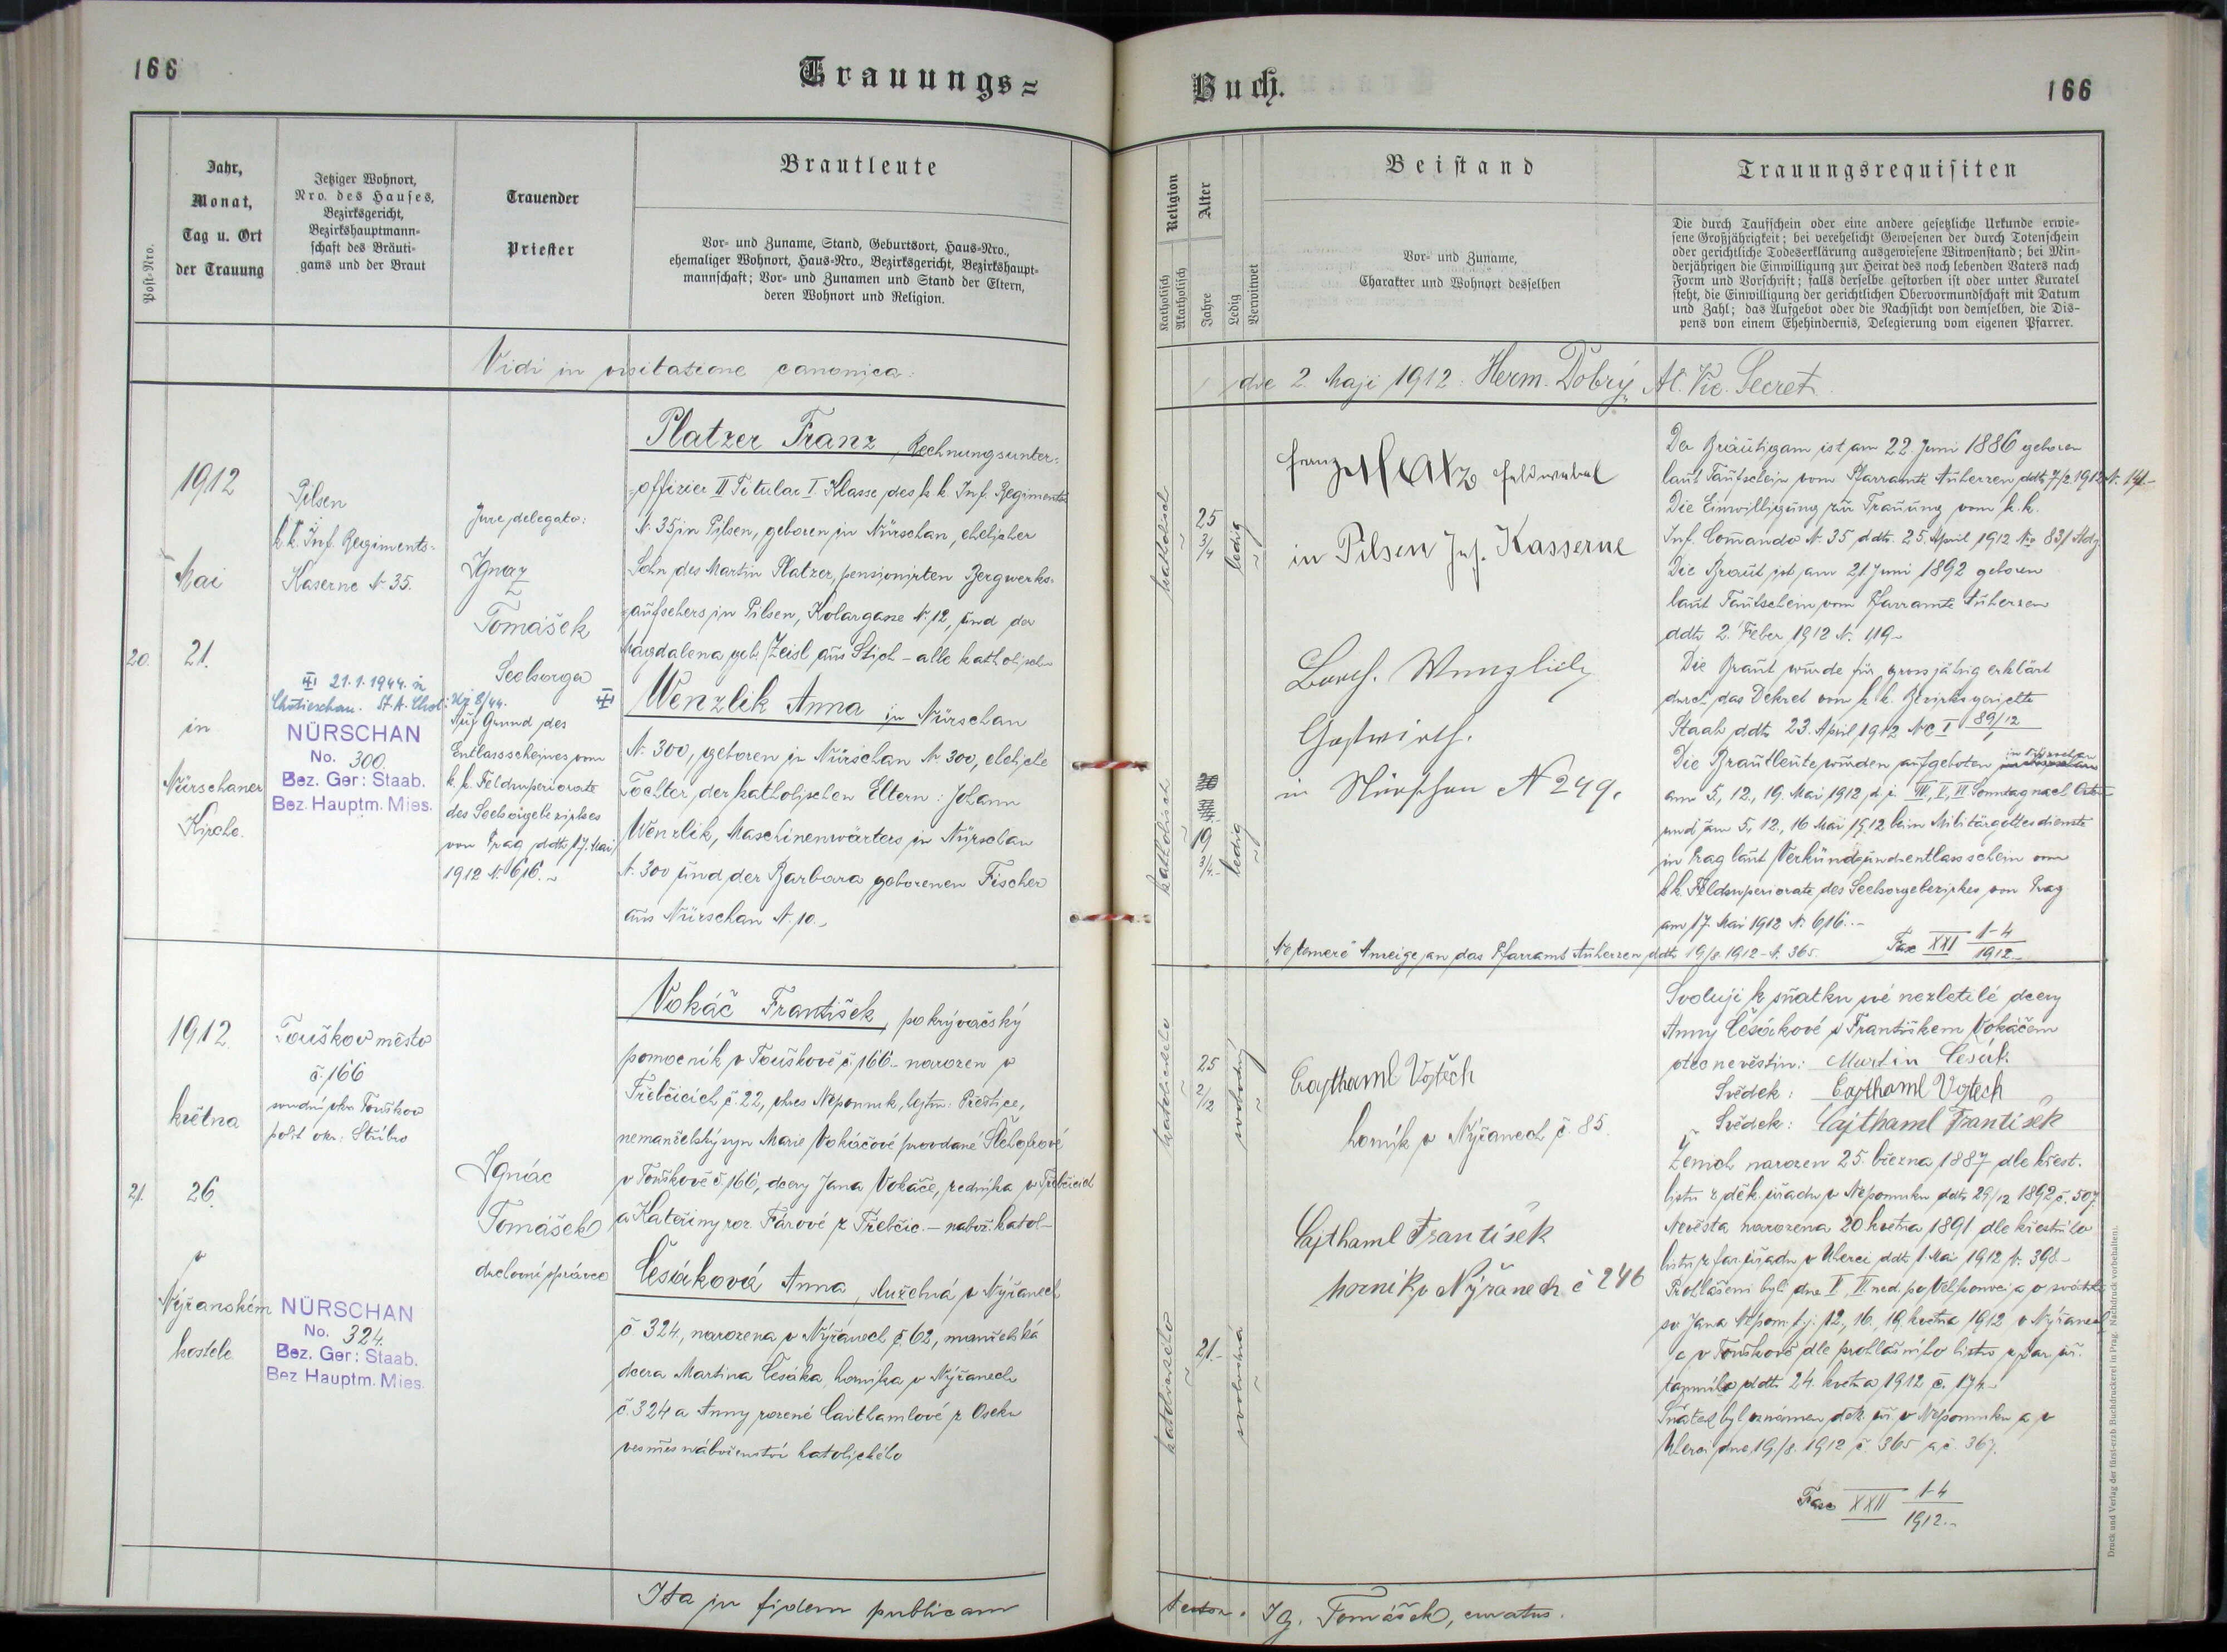 166
Trauungs=
Buch.
166
Post-Nro.
Jahr,
Monat,
Tag u. Ort
der Trauung
Jetziger Wohnort,
Nro. des Hauses,
Bezirksgericht,
Bezirkshauptmann-
schaft des Bräuti-
gams und der Braut
Trauender
Priester
Brautleute
Vor- und Zuname, Stand, Geburtsort, Haus-Nro.,
ehemaliger Wohnort, Haus-Nro., Bezirksgericht, Bezirkshaupt-
mannschaft; Vor- und Zunamen und Stand der Eltern,
deren Wohnort und Religion.
Religion
Katholisch
Akatholisch
Alter
Jahre
Ledig
Verwitwet
Beistand
Vor- und Zuname,
Charakter und Wohnort desselben
Trauungsrequisiten
Die durch Taufschein oder eine andere gesetzliche Urkunde erwie-
sene Großjährigkeit; bei verehelicht Gewesenen der durch Totenschein
oder gerichtliche Todeserklärung ausgewiesene Witwenstand; bei Min-
derjährigen die Einwilligung zur Heirat des noch lebenden Vaters nach
Form und Vorschrift; falls derselbe gestorben ist oder unter Kuratel
steht, die Einwilligung der gerichtlichen Obervormundschaft mit Datum
und Zahl; das Aufgebot oder die Nachsicht von demselben, die Dis-
pens von einem Ehehindernis, Delegierung vom eigenen Pfarrer.
Vidi in visitatione canonica:
die 2. Maji 1912: Herm. Dobrý, Vic. Secret.
20.
1912
Mai
21.
in
Nürschaner
Kirche.
Pilsen
k. k. Inf. Regiments-
Kaserne N. 35.
21.1.1944 in
Chotieschau. St. A. Chot:
8/44.
NÜRSCHAN
No. 300.
Bez. Ger: Staab.
Bez. Hauptm. Mies.
Jure delegato:
Ignaz
Tomášek
Seelsorger
Auf Grund des
Entlassscheines vom
k. k. Feldsuperiorate
des Seelsorgebezirkes
von Prag ddto 17. Mai
1912 N. 616.
Platzer Franz, Rechnungsunter-
offizier II Titular I. Klasse des k. k. Inf. Regiments
N. 35 in Pilsen, geboren in Nürschan, ehelicher
Sohn des Martin Platzer, pensionirten Bergwerks-
aufsehers in Pilsen, Kolargasse N. 12, und der
Magdalena geb. Zeisl aus Stich - alle katholisch
Wenzlik Anna in Nürschan
N. 300, geboren in Nürschan N. 300, eheliche
Tochter der katholischen Eltern: Johann
Wenzlik, Maschinenwärters in Nürschan
N. 300 und der Barbara geborenen Fischer
aus Nürschan N. 10.
katholisch
25
3/4
ledig
katholisch
19
3/4
ledig
Franz Feldwebel
in Pilsen Inf. Kasserne
Barth. Wenzlick
Gastwirth.
in Nürschan N 249.
Der Bräutigam ist am 22. Juni 1886 geboren
laut Taufschein vom Pfarramte Auherzen ddto 7/2 1912 N. 141.
Die Einwilligung zur Trauung vom k. k.
Inf. Comando N. 35 ddto. 25. April 1912 No 831
Die Braut ist am 21. Juni 1892 geboren
laut Taufschein vom Pfarramte Auherzen
ddto 2. Feber 1912 N. 119.
Die Braut wurde für grossjährig erklärt
durch das Dekret vom k. k. Bezirksgerichte
Staab ddto 23. April 1912 Nc I 89/12
Die Brautleute wurden aufgeboten in Nürschan
am 5., 12., 19. Mai 1912 d. i. IV, V, VI Sonntag nach Ostern
und am 5., 12., 16 Mai 1912 beim Militärgottesdienste
in Prag laut Verkünd- und entlassschein vom
k. k. Feldsuperiorate des Seelsorgebezirkes von Prag
am 17. Mai 1912 N. 616.
Fasc XXI 1-4/1912
"Ne temere" Anzeige an das Pfarramt Auherzen ddto 19/8. 1912 - N. 365.
21.
1912
května
26.
v
Nýřanském
kostele
Touškov město
č. 166
soudní okr Touškov
polit okr: Stříbro
NÜRSCHAN
No. 324.
Bez. Ger: Staab.
Bez Hauptm. Mies.
Ignác
Tomášek
duchovní správce
Vokáč František, pokrývačský
pomocník v Touškově č. 166 - narozen v
Třebčicích č. 22, okres Nepomuk, hejtm: Přeštice,
nemanželský syn Marie Vokáčové provdané
v Touškově č. 166, dcery Jana Vokáče, zedníka v Třebčicích
a Kateřiny roz. Fárové z Třebčic. - nábož. katol -
Česáková Anna, služebná v Nýřanech
č 324, narozena v Nýřanech č. 62, manželská
dcera Martina Česáka, horníka v Nýřanech
č. 324 a Anny rozené Caithamlové z Oseku
vesměs náboženství katolického
katolického
25
2/12
svobodný
katolického
21.
svobodná
Cajthaml Vojtěch
horník v Nýřanech č. 85.
Cajthaml František
horník v Nýřanech č 246
Svoluji k sňatku své nezletilé dcery
Anny Česákové s Františkem Vokáčem
otec nevěstin: Martin Česák
Svědek: Cajthaml Vojtech
Svědek: Cajthaml František
Ženich narozen 25. března 1887 dle křest.
listu z děk. úřadu v Nepomuku ddto 29/12 1892 č. 507.
Nevěsta narozena 20. května 1891 dle křestního
listu z far. úřadu v Úherci ddto 1. Mai 1912 č. 398.
Prohlášeni byli dne V, VI ned. po Velikonoci a o svátku
sv Jana Nepom. t. j: 12., 16., 19. května 1912 v Nýřanech
a v Touškově dle prohlášního listu z far. úř.
tamního ddto 24. května 1912 č. 174.
Sňatek byl oznámen děk. úř. v Nepomuku a v
Úherci dne 19./8. 1912 č. 365 a č. 367.
Fasc XXII 1-4/1912.
Ita in fidem publicam
Ig. Tomášek, curatus.
Druck und Verlag der fürst-erzb Buchdruckerei in Prag. Nachdruck vorbehalten.